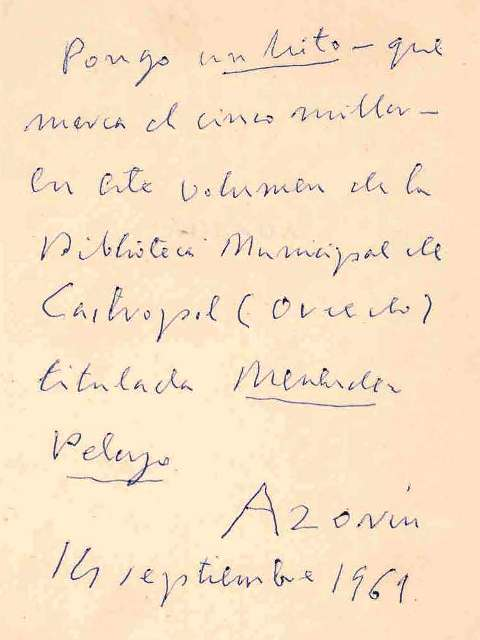 Pongo un hito - que
marca el cinco millar -
en este volumen de la
Biblioteca Municipal de
Castropol (Oviedo)
titulada Menéndez
Pelayo.
Azorín
14 septiembre 1961.